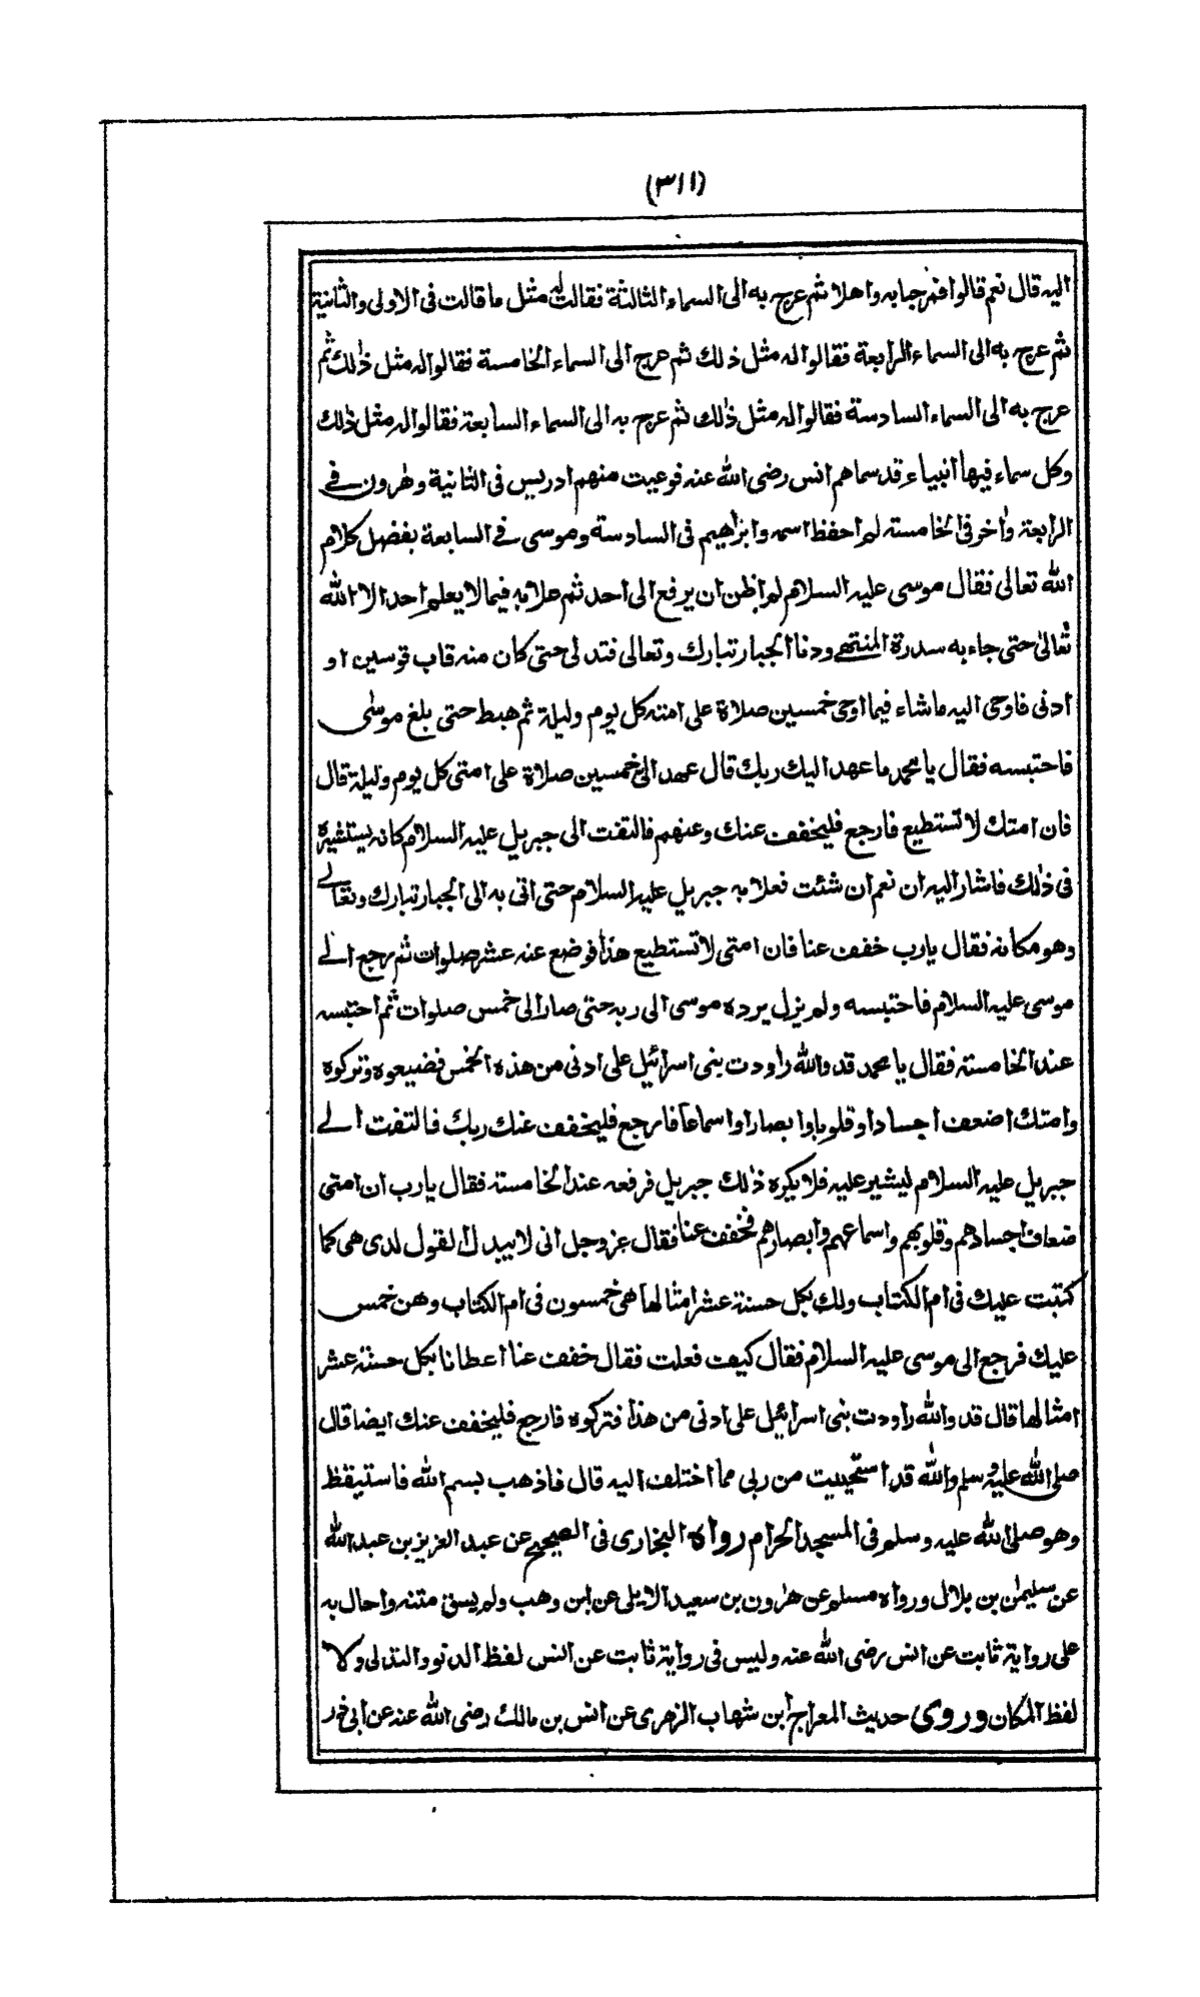 (٣١١)
اليه قال نعم قالوا فمرحبا به واهلا ثم عرج به الى السماء الثالثة فقالت له مثل ما قالت فى الاولى والثانية
ثم عرج به الى السماء الرابعة فقالوا له مثل ذلك ثم عرج الى السماء الخامسة فقالوا له مثل ذلك ثم
عرج به الى السماء السادسة فقالوا له مثل ذلك ثم عرج به الى السماء السابعة فقالوا له مثل ذلك
وكل سماء فيها انبياء قد سماهم انس رضى الله عنه فوعيت منهم ادريس فى الثانية وهرون فى
الرابعة واخر فى الخامسة لم احفظ اسمه وابراهيم فى السادسة وموسى فى السابعة بفضل كلام
الله تعالى فقال موسى عليه السلام لم اظن ان يرفع الى احد ثم علا به فيما لا يعلم احد الا الله
تعالى حتى جاء به سدرة المنتهى ودنا الجبار تبارك وتعالى فتدلى حتى كان منه قاب قوسين او
ادنى فاوحى اليه ماشاء فيما اوحى خمسين صلاة على امته كل يوم وليلة ثم هبط حتى بلغ موسى
فاحتبسه فقال يا محمد ما عهد اليك ربك قال عهد الى خمسين صلاة على امتى كل يوم وليلة قال
فان امتك لا تستطيع فارجع فليخفف عنك وعنهم فالتفت الى جبريل عليه السلام كانه يستشيره
فى ذلك فاشار اليه ان نعم ان شئت فعلا به جبريل عليه السلام حتى اتى به الى الجبار تبارك وتعالى
وهو مكانه فقال يارب خفف عنا فان امتى لا تستطيع هذا فوضع عنه عشر صلوات ثم رجع الى
موسى عليه السلام فاحتبسه ولم يزل يرده موسى الى ربه حتى صار الى خمس صلوات ثم احتبسه
عند الخامسة فقال يا محمد قد والله راودت بنى اسرائيل على ادنى من هذه الخمس فضيعوه وتركوه
وامتك اضعف اجسادا وقلوبا وابصارا واسماعا فارجع فليخفف عنك ربك فالتفت الى
جبريل عليه السلام ليشير عليه فلا يكره ذلك جبريل فرفعه عند الخامسة فقال يارب ان امتى
ضعاف اجسادهم وقلوبهم واسماعهم وابصارهم فخفف عنا فقال عز وجل انى لا يبدل القول لدى هى كما
كتبت عليك فى ام الكتاب ولك بكل حسنة عشر امثالها هى خمسون فى ام الكتاب وهن خمس
عليك فرجع الى موسى عليه السلام فقال كيف فعلت فقال خفف عنا اعطانا بكل حسنة عشر
امثالها قال قد والله راودت بنى اسرائيل على ادنى من هذا فتركوه فارجع فليخفف عنك ايضا قال
صلى الله عليه وسلم والله قد استحييت من ربى مما اختلف اليه قال فاذهب بسم الله فاستيقظ
وهو صلى الله عليه وسلم فى المسجد الحرام رواه البخارى فى الصحيح عن عبد العزيز بن عبد الله
عن سليمن بن بلال ورواه مسلم عن هرون بن سعيد الايلى عن ابن وهب ولم يسق متنه واحال به
على رواية ثابت عن انس رضى الله عنه وليس فى رواية ثابت عن انس لفظ الدنو والتدلى ولا
لفظ المكان وروى حديث المعراج ابن شهاب الزهرى عن انس بن مالك رضى الله عنه عن ابى ذر